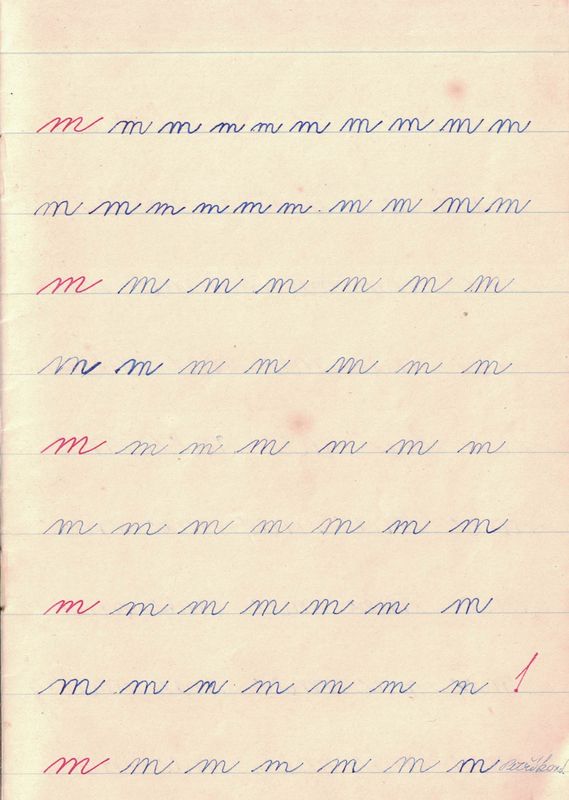 m m m m m m m m m m
m m m m m m m m m m
m m m m m m m
m m m m m m m
m m m m m m m
m m m m m m m
m m m m m m m
m m m m m m m 1
m m m m m m m